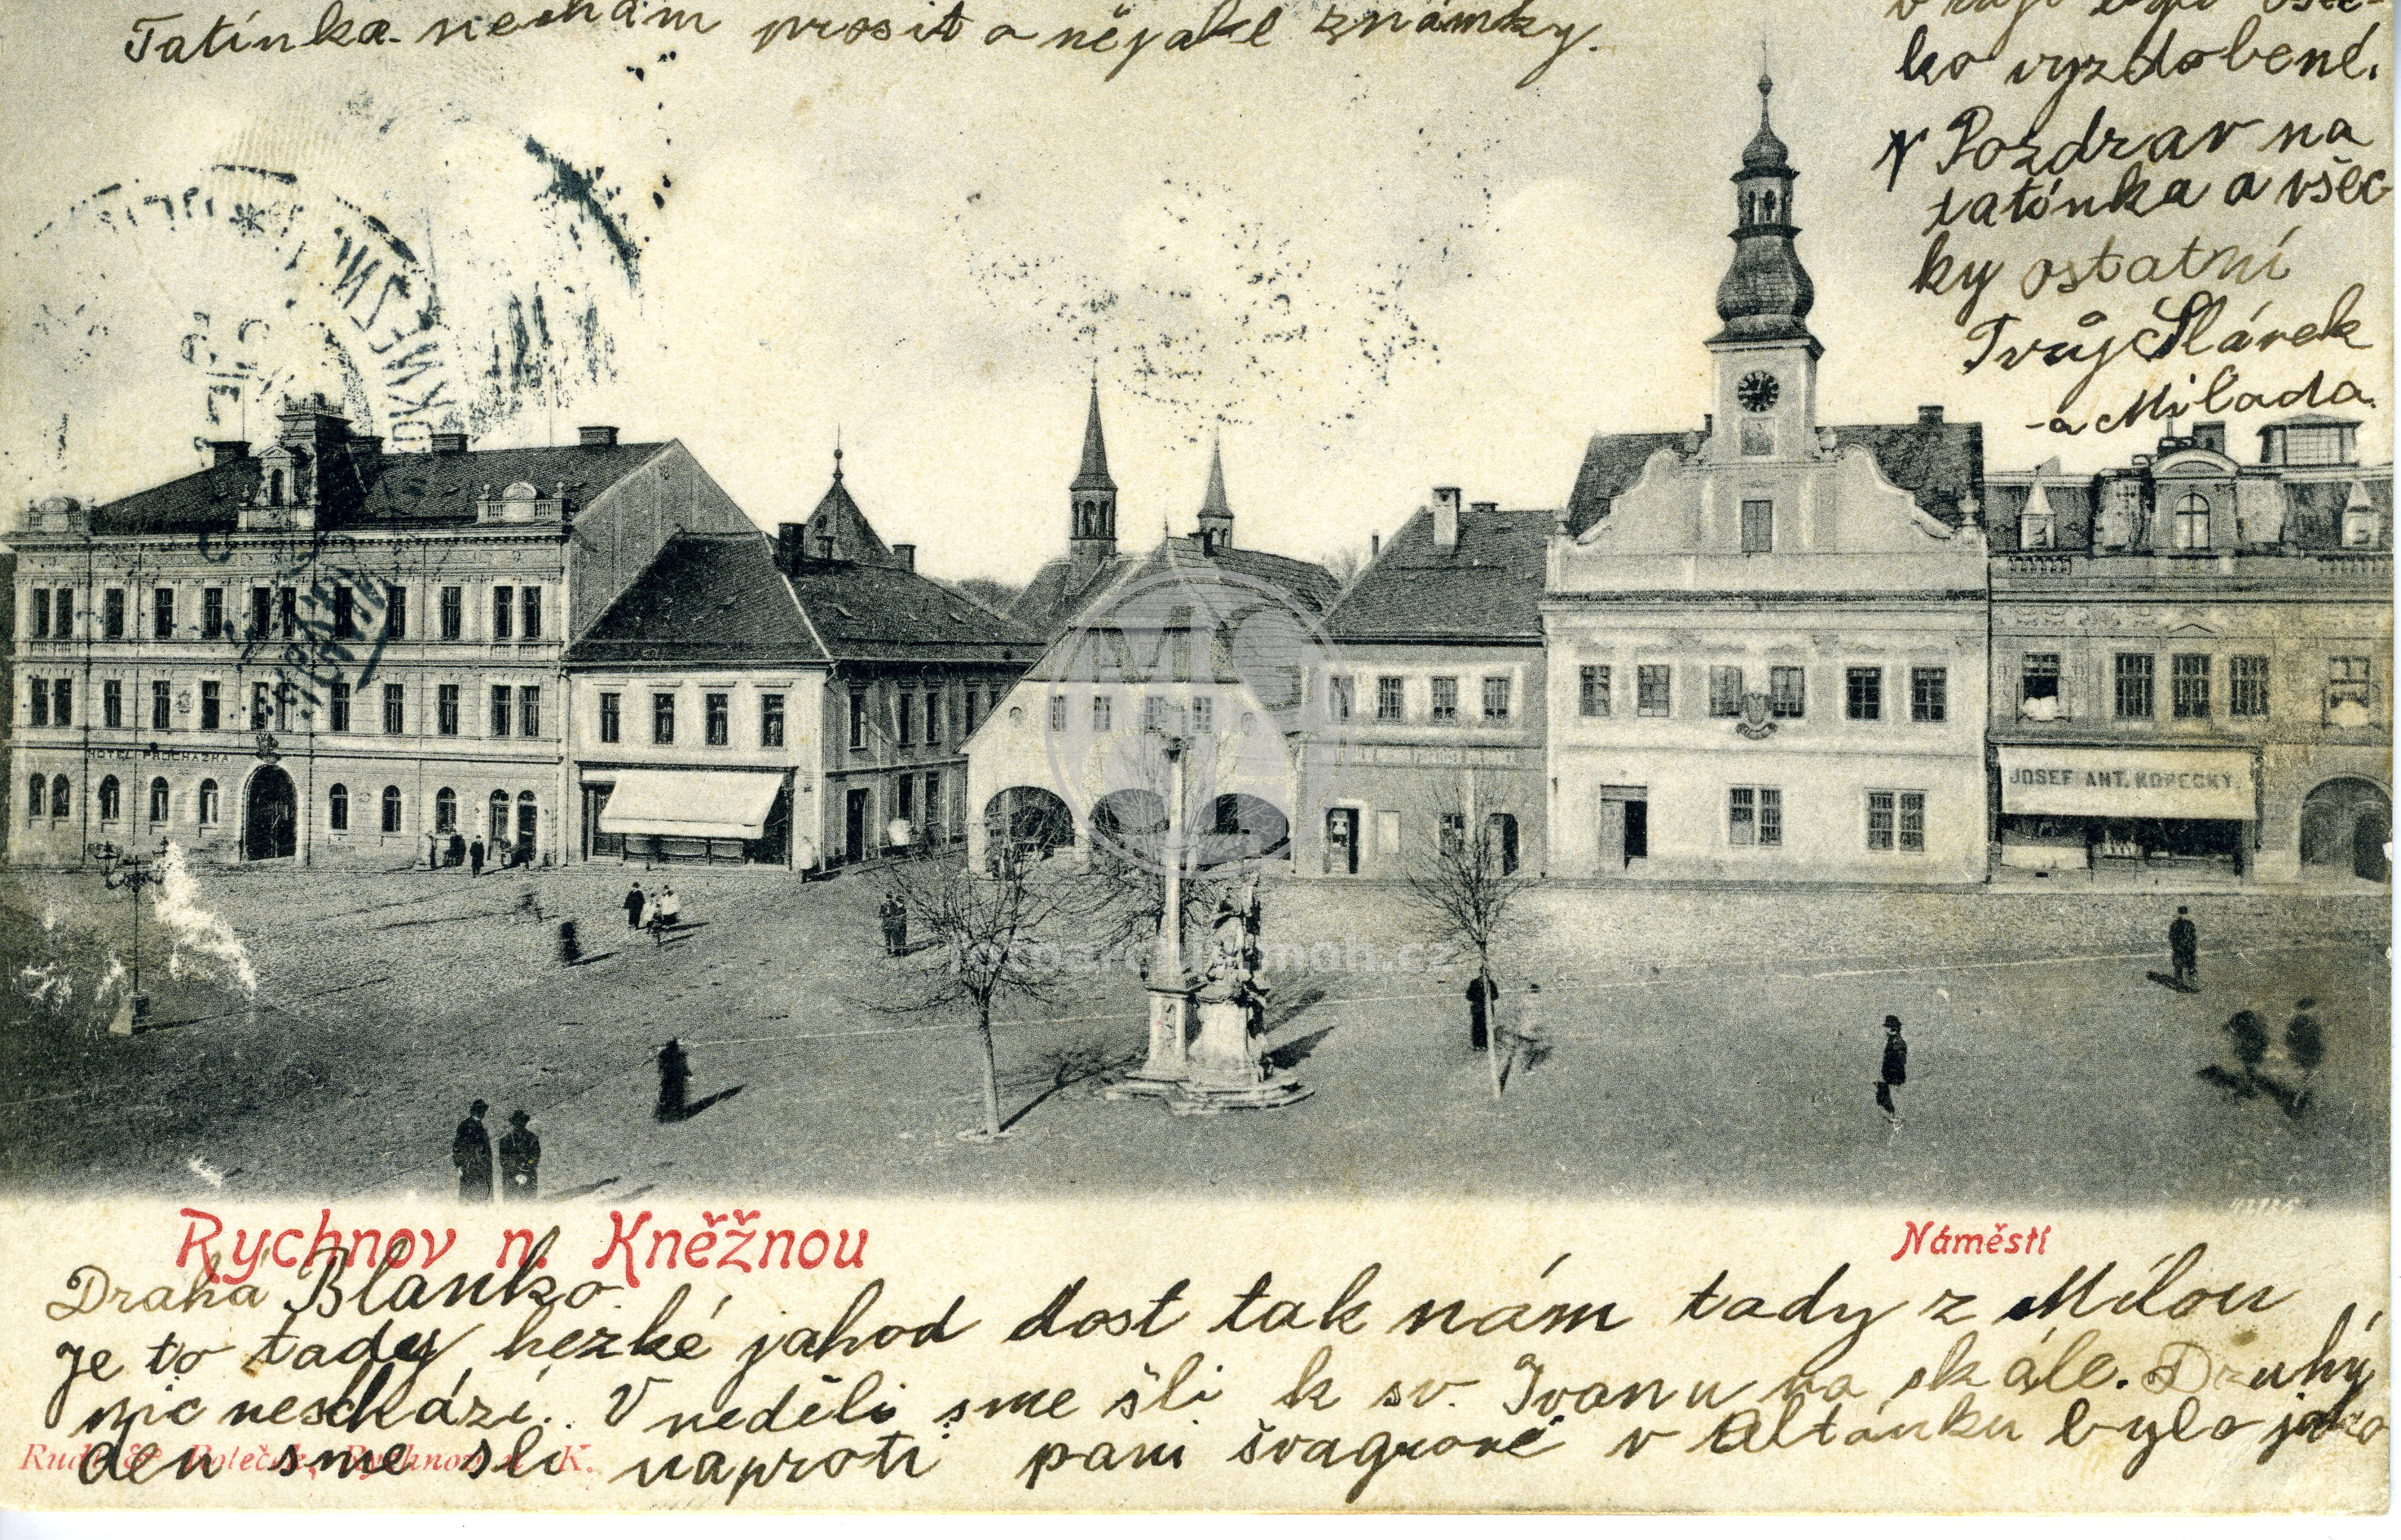 Tatínka nechám prosit o nějaké známky.
ko vyzdobené.
Pozdrav na
tatínka a všec
ky ostatní
Tvůj Slávek
a Milada.
HOTEL PROCHÁZKA
JOSEF ANT. KOPECKÝ
fotoarchivmoh.cz
Rychnov n. Kněžnou
Náměstí
Drahá Blanko.
Je to tady hezké jahod dost tak nám tady z Mílou
nic neschází. V neděli sme šli k sv. Ivanu na skále. Druhý
den sme šli naproti pani švagrové v Altánku bylo jako
Rychnov n. K.